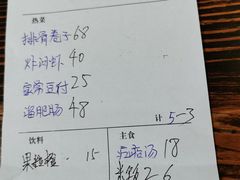 热菜
排骨卷子68
炸河虾40
家常豆付25
溜肥肠48
计 5-3
饮料
主食
果粒橙 · 15
疙瘩汤18
米饭2-6